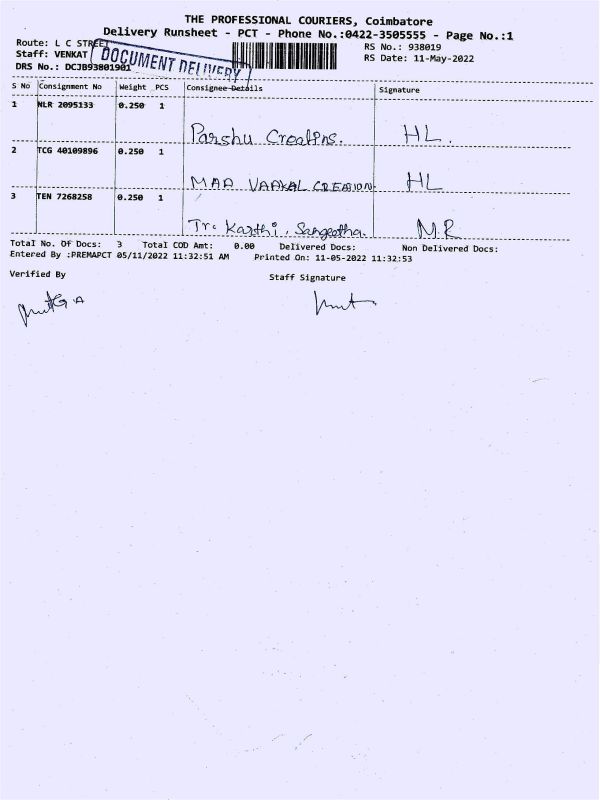 THE PROFESSIONAL COURIERS, Coimbatore
Delivery Runsheet - PCT - Phone No.:0422-3505555 - Page No.:1
Route: L C STREET
RS No.: 938019
Staff: VENKAT
RS Date: 11-May-2022
DRS No.: DCJB93801901
DOCUMENT DELIVERY
S No Consignment No Weight PCS Consignee Details Signature
1 NLR 2095133 0.250 1
Parshu Creations. HL.
2 TCG 40109896 0.250 1
MAA VAAKAL CREATION HL
3 TEN 7268258 0.250 1
Tr. Karthi, Sangeetha. N.R
Total No. Of Docs: 3 Total COD Amt: 0.00 Delivered Docs: Non Delivered Docs:
Entered By :PREMAPCT 05/11/2022 11:32:51 AM Printed On: 11-05-2022 11:32:53
Verified By Staff Signature